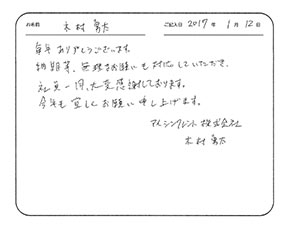 お名前 木村 勇太 ご記入日 2017年 1月 12日
毎年ありがとうございます。
納期等、無理なお願いも対応していただき、
社員一同、大変感謝しております。
今年も宜しくお願い申し上げます。
アイシンクレント 株式会社
木村 勇太